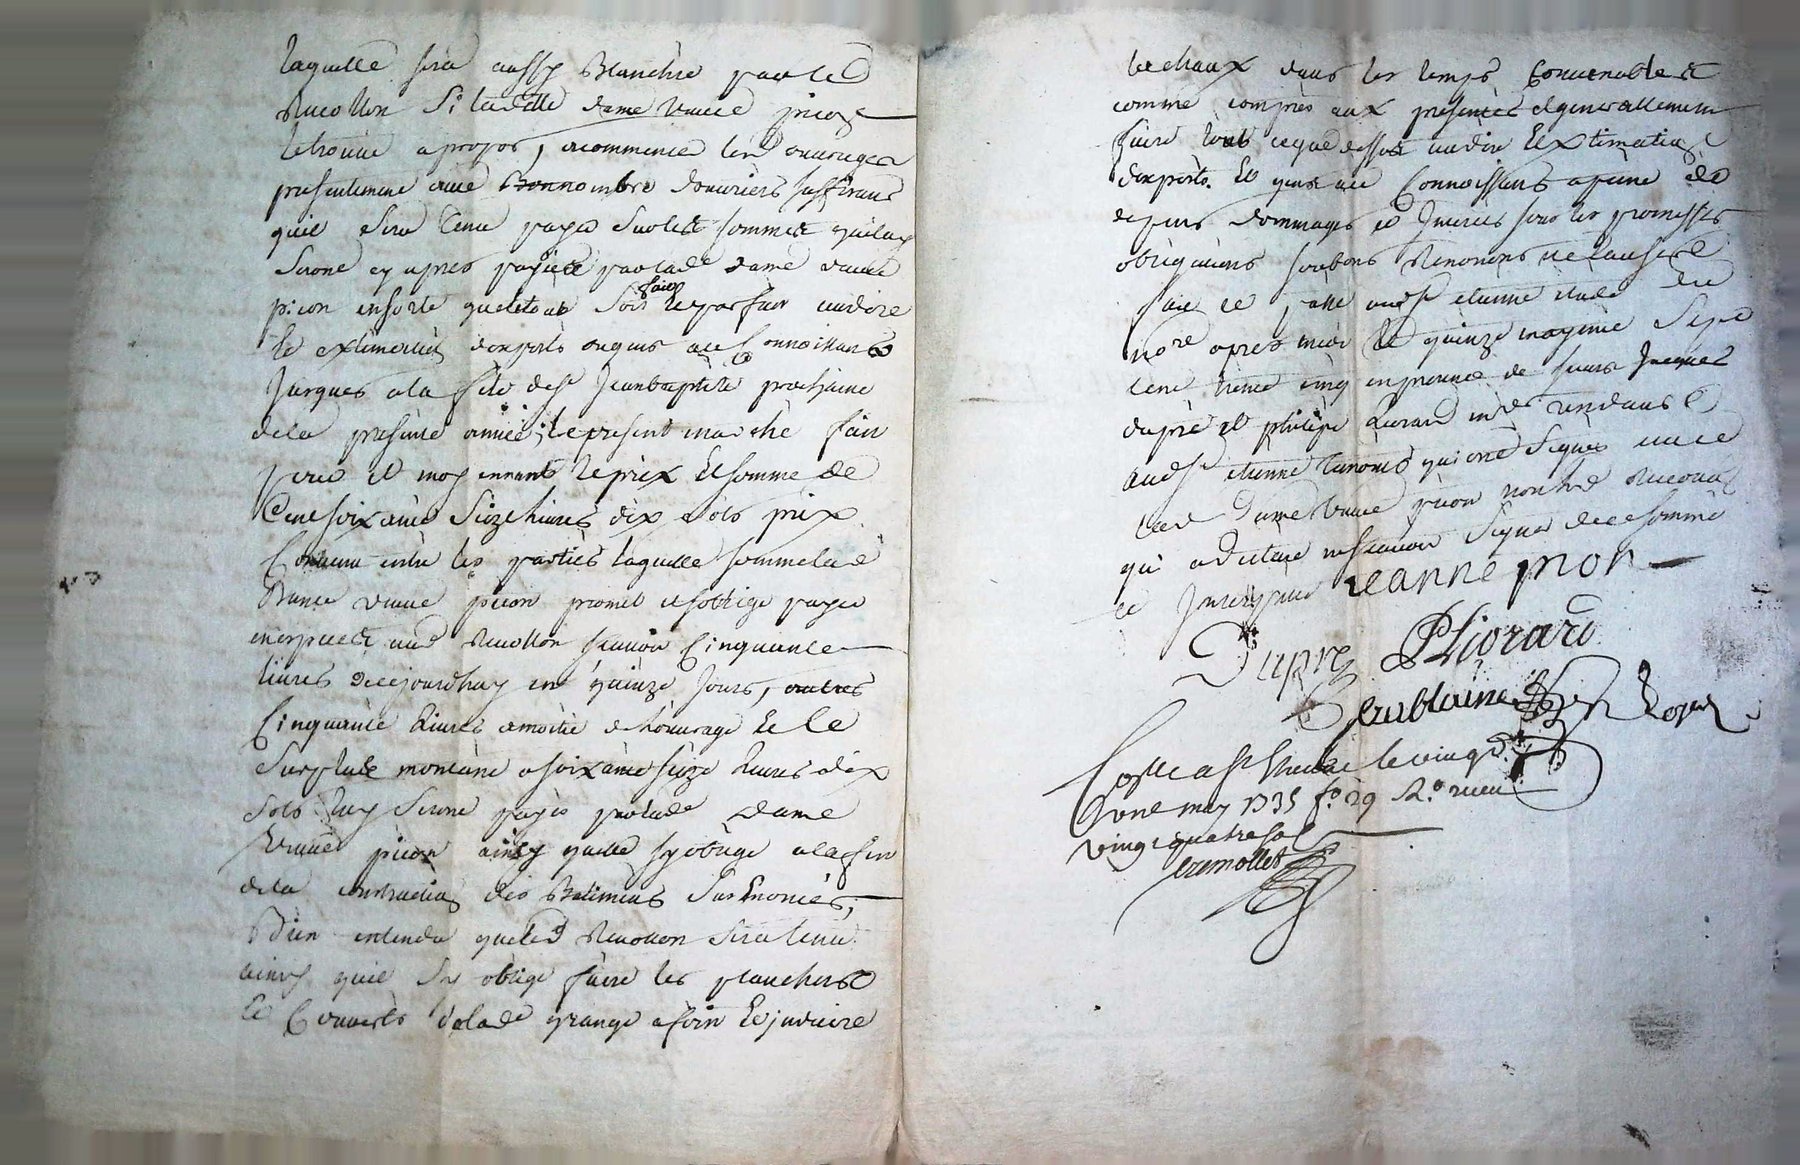 laquelle sera aussy Blanchie par led
Revollon si ladette dame veuve picon
letrouve apropos, acommencé les ouvrages
presentement avec Bon nombre d'ouvriers suffisans
quil sera tenu payer sur les sommes quiluy
seront cy apres payées par lade dame veuve
picon ensorte queletout soit fait et parfait audire
et extimation d'experts ougens ace Connoissants
Jusques ala fête de st Jean baptiste prochaine
dela presente année; le present marché fait
pour et moyennant leprix et somme de
Cent soixante Seize livres dix sols prix
Convenu entre les parties laquelle somme lad
Dame veuve picon promet et soblige payer
aud Revollon scavoir Cinquante
livres dece jourdhuy en quinze Jours, autres
Cinquante livres amoitié de l'ouvrage et le
Surplus montant a soixante seize livres dix
sols luy seront payés par lade Dame
veuve picon ainsy quelle syoblige alafin
dela construction des Batimens susenoncés,
Bien entendu queled Revollon sera tenu
ainsy quil sy oblige faire les planchers
et Couverts de lade grange afoin et
la chaux dans les temps Convenables et
comme compris aux presentes et generallement
faire tout ceque dessus audire et extimation
dexperts et gens ace Connoissans apeine de
depens dommages et Interets sous les promesses
obligations soubmons renonons et clauses
fait et passé aud st etienne etude du
nore apres midi le quinze may mil sept
cent trente cinq en presence de sieurs Jacques
dupré et philipe Liorard mds rendants
aud st etienne temoins qui ont signés avec
lad Dame veuve picon non led Revollon
qui a declaré ne scavoir signer de ce sommé
et Interpellé Jeanne pion
Dupré PLiorard
Controllé a st etienne le vingt
et un may 1735 fo 29 Ro. receu
vingt quatre sols